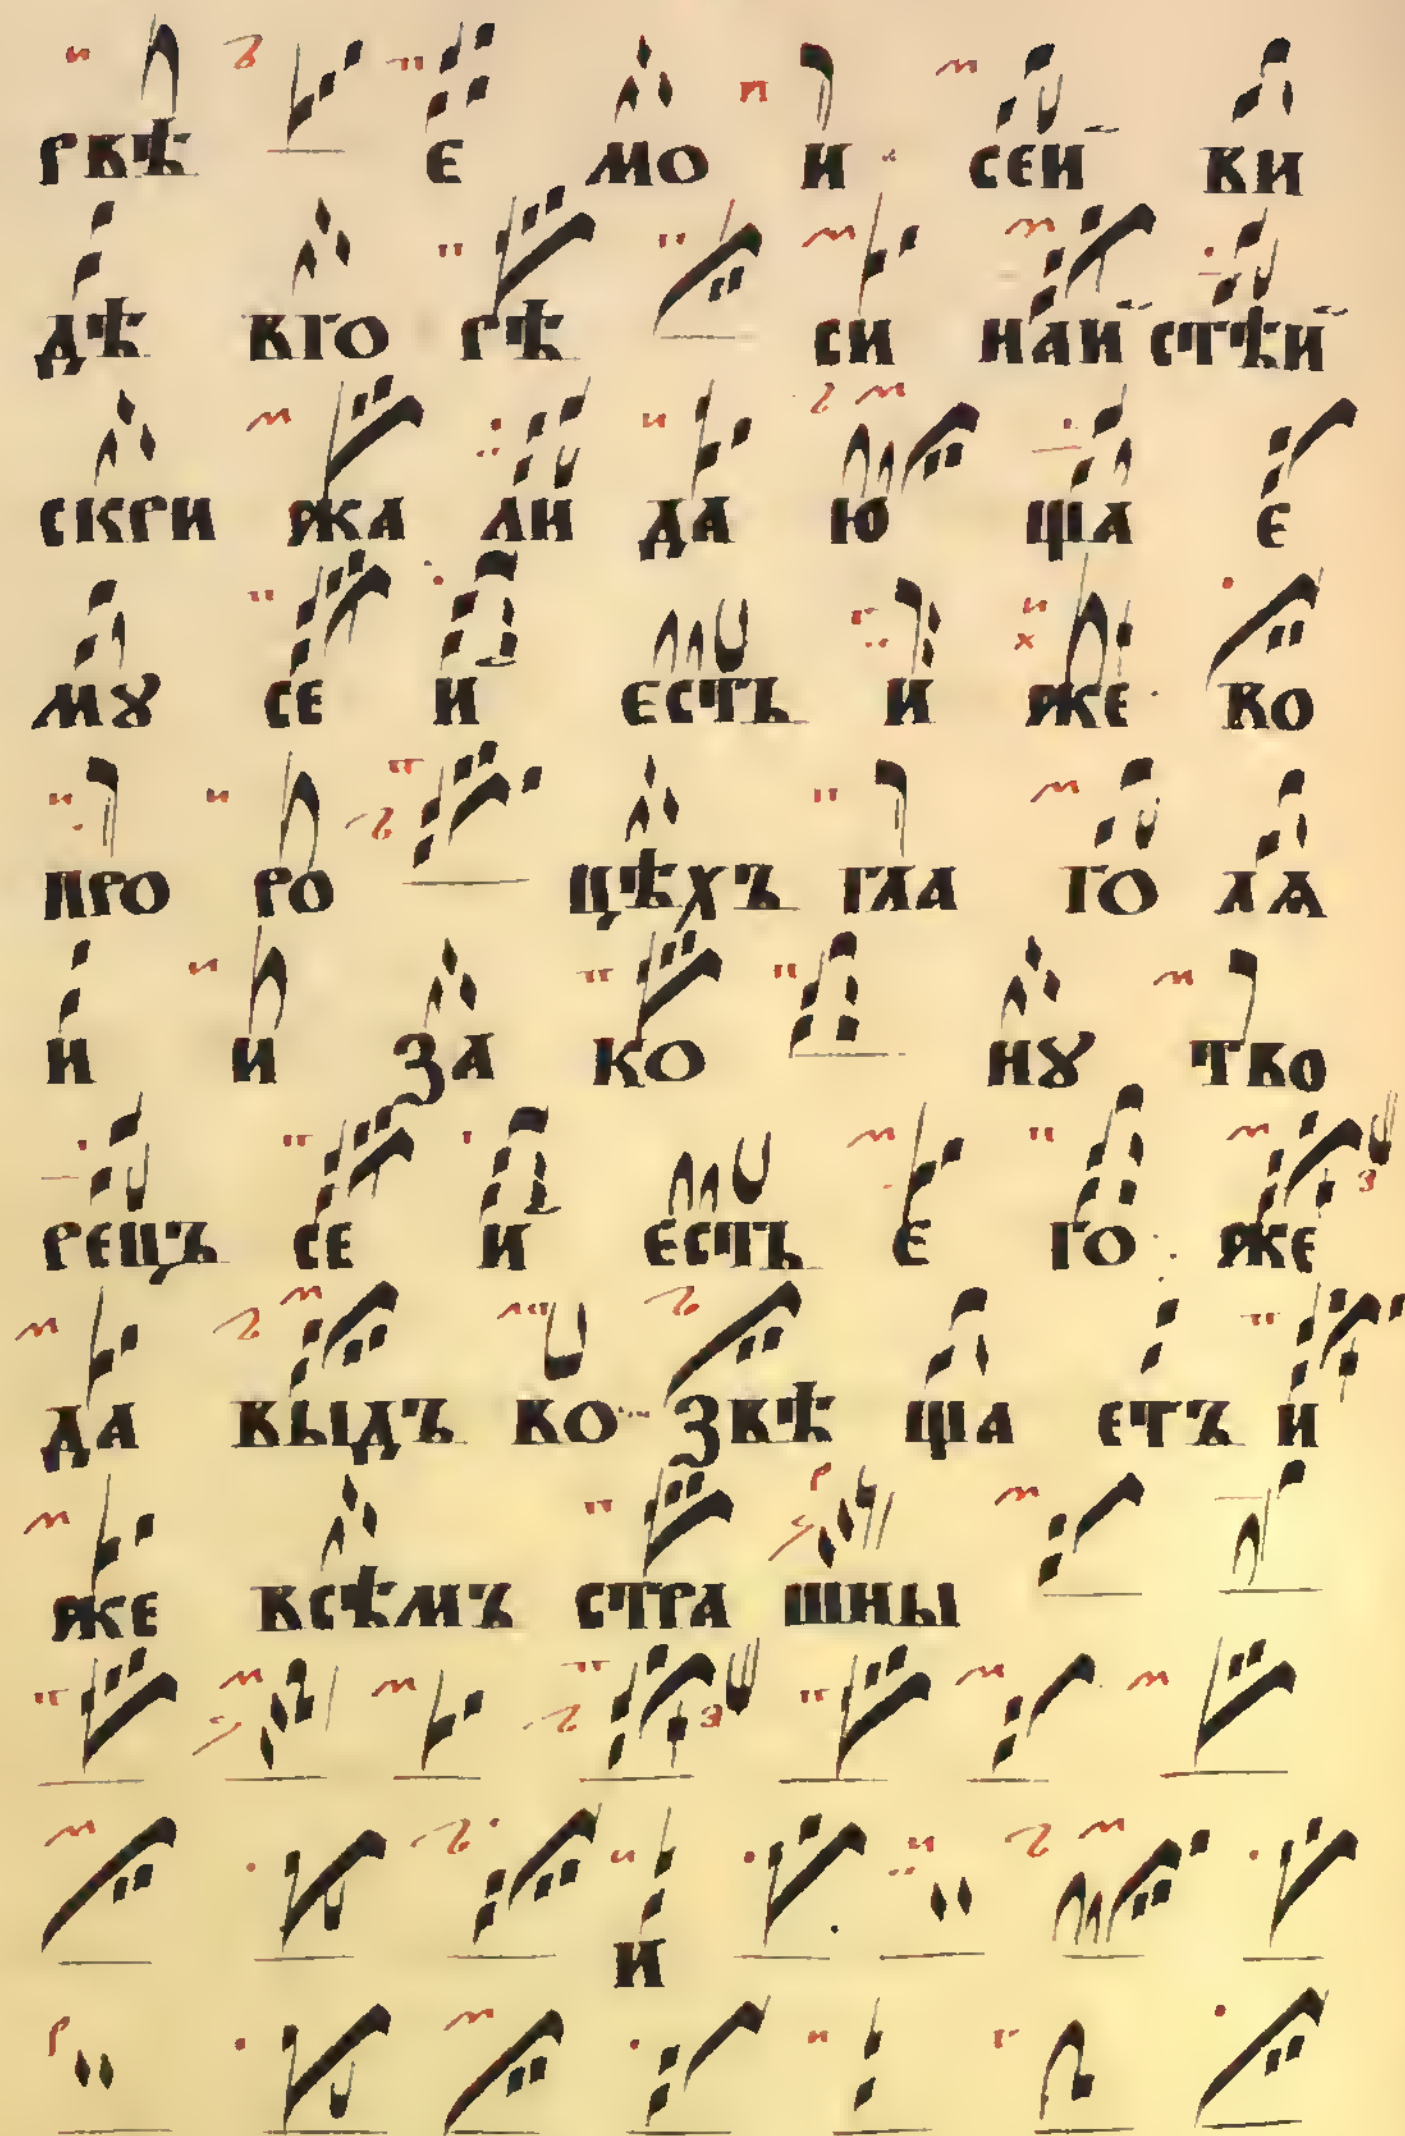 рвѣ е мо и сеи ви
дѣ вго рѣ си наи стѣи
скри жа ли да ю ща е
мꙋ се и есть и же во
про ро цѣхъ гла го лѧ
и и за ко нꙋ тво
рецъ се и есть е го же
да выдъ во звѣ ща етъ и
же всѣмъ стра шны
и